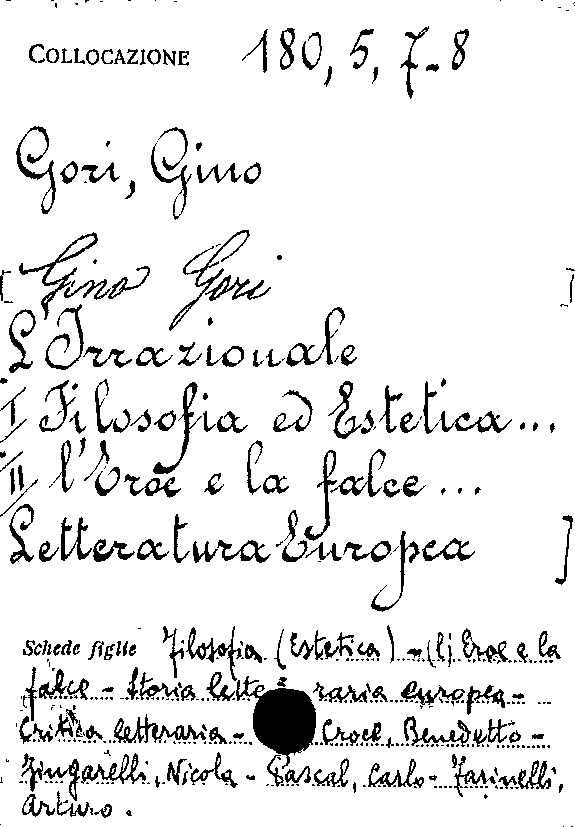 COLLOCAZIONE 180, 5, 7-8
Gori, Gino
[Gino Gori]
L'Irrazionale
I Filosofia ed Estetica...
II l'Eroe e la falce...
Letteratura Europea]
Schede figlie Filosofia (Estetica) - (l') Eroe e la
falce - Storia letteraria europea -
Critica letteraria - Croce, Benedetto -
Zingarelli, Nicola - Pascal, Carlo - Farinelli,
Arturo.